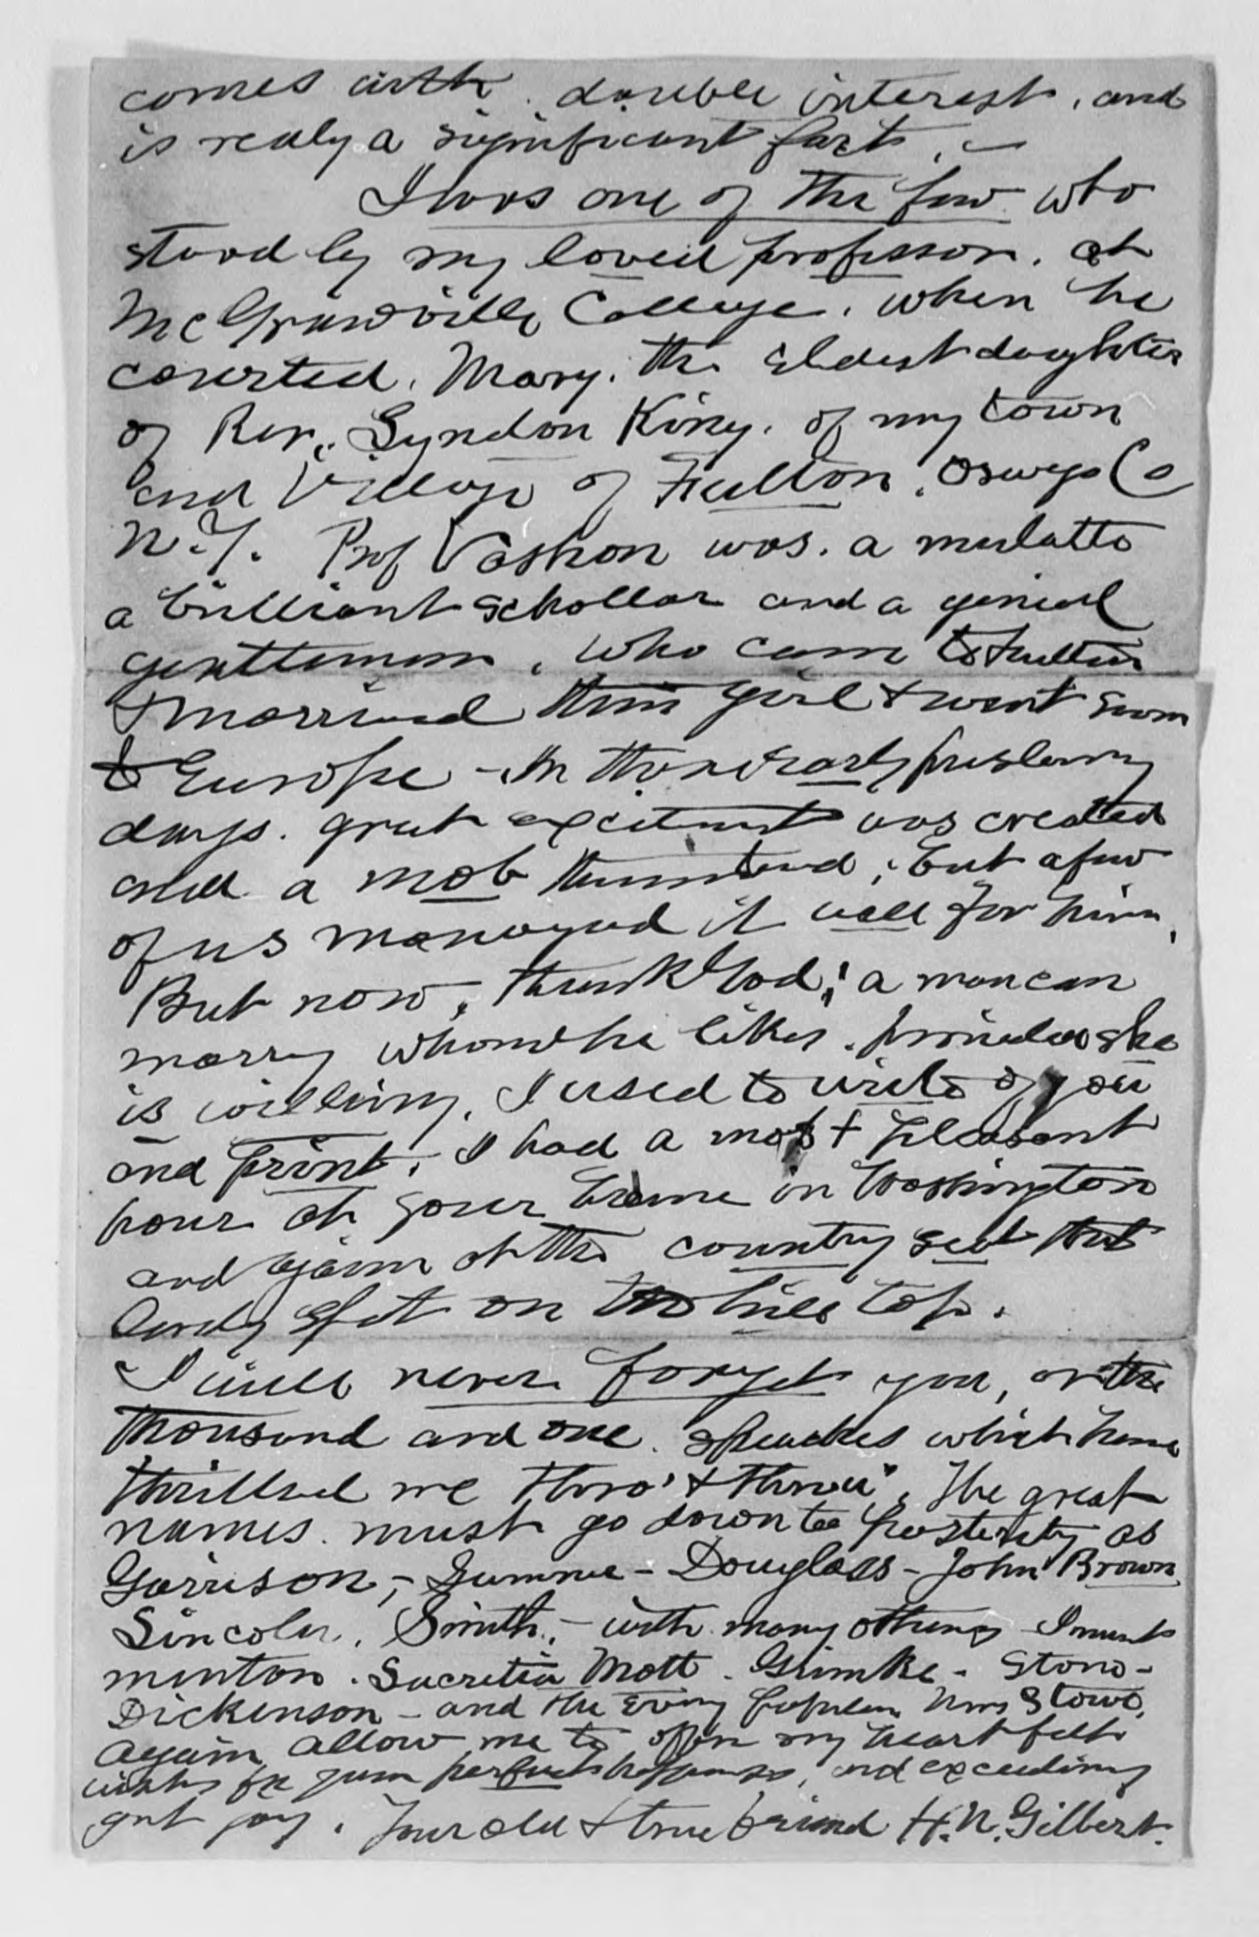 comes with double interest, and
is really a significant fact. —
I was one of the few who
stood by my loved professor, at
McGrawville College, when he
courted, Mary, the eldest daughter
of Rev. Lyndon King, of my town
and Village of Fulton, Oswego Co
N.Y. Prof Vashon was a mulatto
a brilliant schollar and a genial
gentleman, who came to Fulton
& married this girl & went soon
to Europe - In those early proslavery
days, great excitement was created
and a mob threatened, but a few
of us managed it well for him.
But now, thank God, a man can
marry whom he likes, provided she
is willing. I used to write of you
and print. I had a most pleasant
hour at your home in Washington
and again at the country seat that
lovely spot on the hill top.
I will never forget you, or the
thousand and one speeches which have
thrilled me thro' & throu'. The great
names must go down to posterity as
Garrison, - Sumner - Douglass - John Brown
Lincoln, Smith, - with many others I must
mention. Lucretia Mott - Grimke - Stone -
Dickenson - and the every popular Mrs Stowe.
Again allow me to offer my heart felt
wishes for your perfect happiness, and exceeding
grt joy. Your old & true friend H.N. Gilbert.